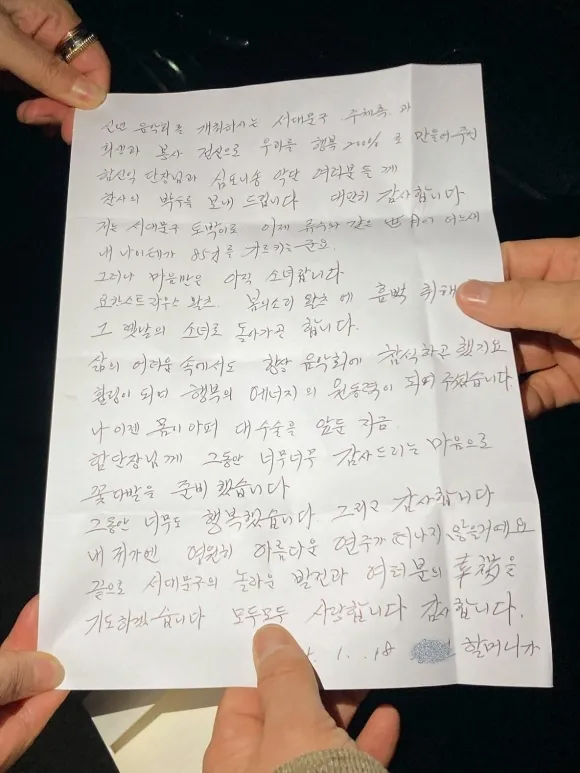 신년 음악회를 개최하시는 서대문구 주최측과
희생과 봉사 정신으로 우리를 행복 200% 로 만들어주신
함신익 단장님과 심포니송 악단 여러분들께
찬사의 박수를 보내 드립니다 대단히 감사합니다
저는 서대문구 토박이로 이제 유수와 같은 세월이 어느새
내 나이테가 85살를 가르키는군요
그러나 마음만은 아직 소녀랍니다
요한스트라우스 왈츠. 봄의소리 왈츠에 흠뻑 취해
그 옛날의 소녀로 돌아가곤 합니다.
삶의 어려움 속에서도 항상 음악회에 참석하곤 했지요
힐링이 되며 행복의 에너지의 원동력이 되며 주셨습니다.
나 이젠 몸이 아퍼 대수술을 앞둔 지금
함단장님께 그동안 너무너무 감사드리는 마음으로
꽃다발을 준비했습니다
그동안 너무도 행복했습니다. 그리고 감사합니다
내 귀가엔 영원히 아름다운 연주가 떠나지 않을거예요
끝으로 서대문구의 놀라운 발전과 여러분의 幸福을
기도하겠습니다 모두모두 사랑합니다 감사합니다.
1. 18 할머니가